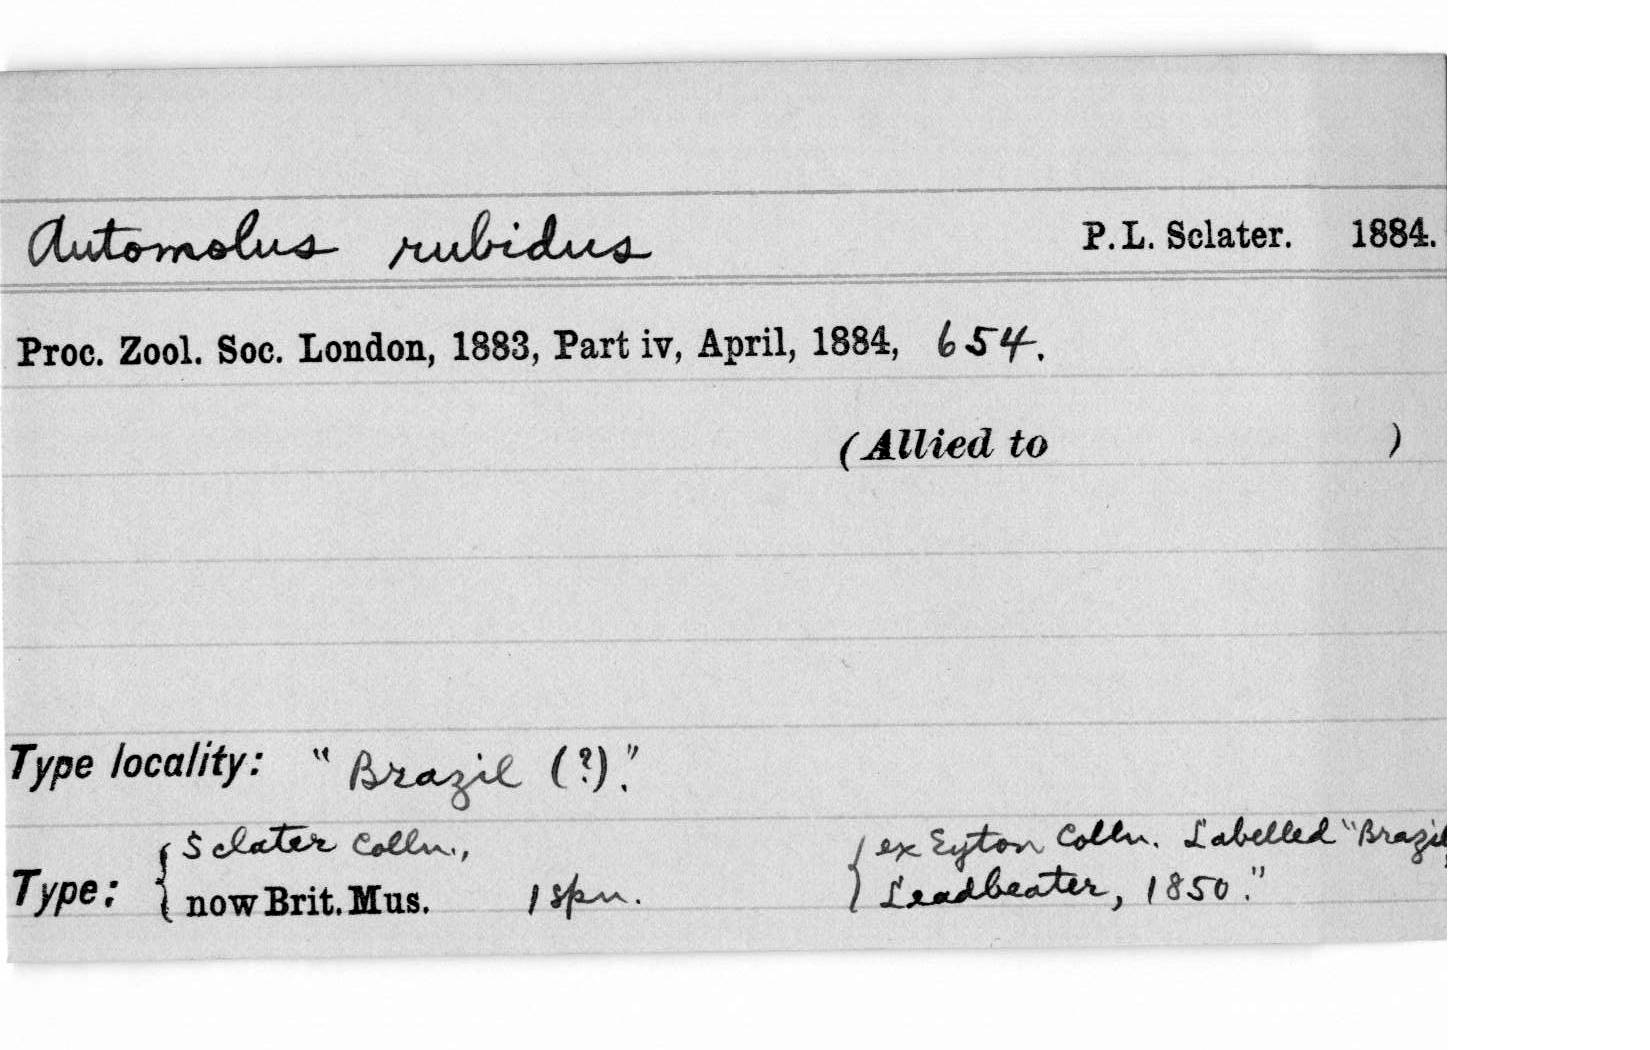 Automolus rubidus P. L. Sclater. 1884.
Proc. Zool. Soc. London, 1883, Part iv, April, 1884, 654.
(Allied to )
Type locality: "Brazil (?)."
{ Sclater Colln., { ex Eyton Colln. Labelled "Brazil,
Type: now Brit. Mus. 1 spn. Leadbeater, 1850."